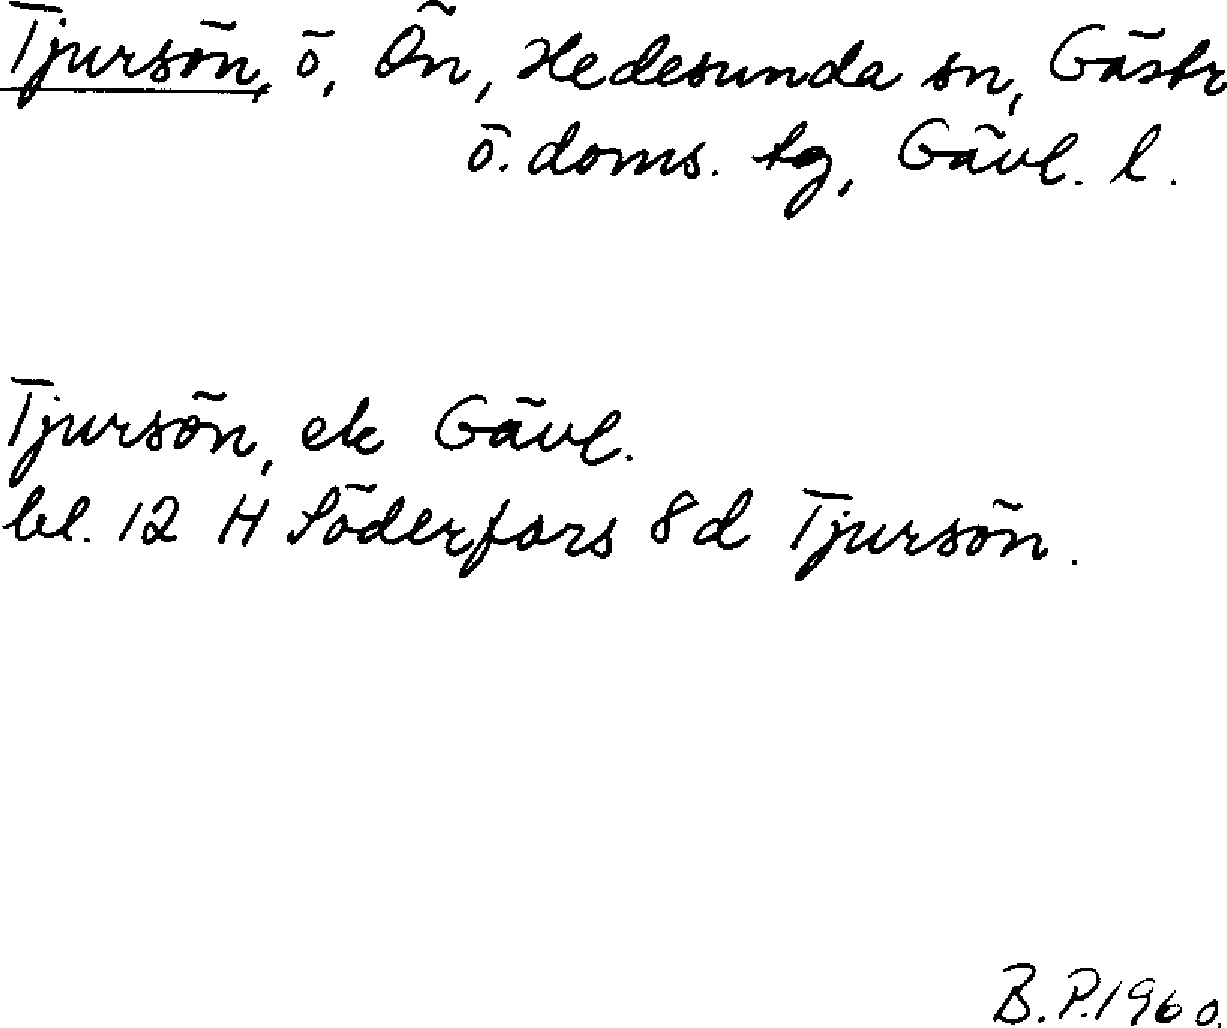 Tjursön, ö, Ön, Hedesunda sn, Gästr
ö. doms. tg, Gävl. l.
Tjursön, ek Gävl.
bl. 12 H Söderfors 8d Tjursön.
B.P.1960.